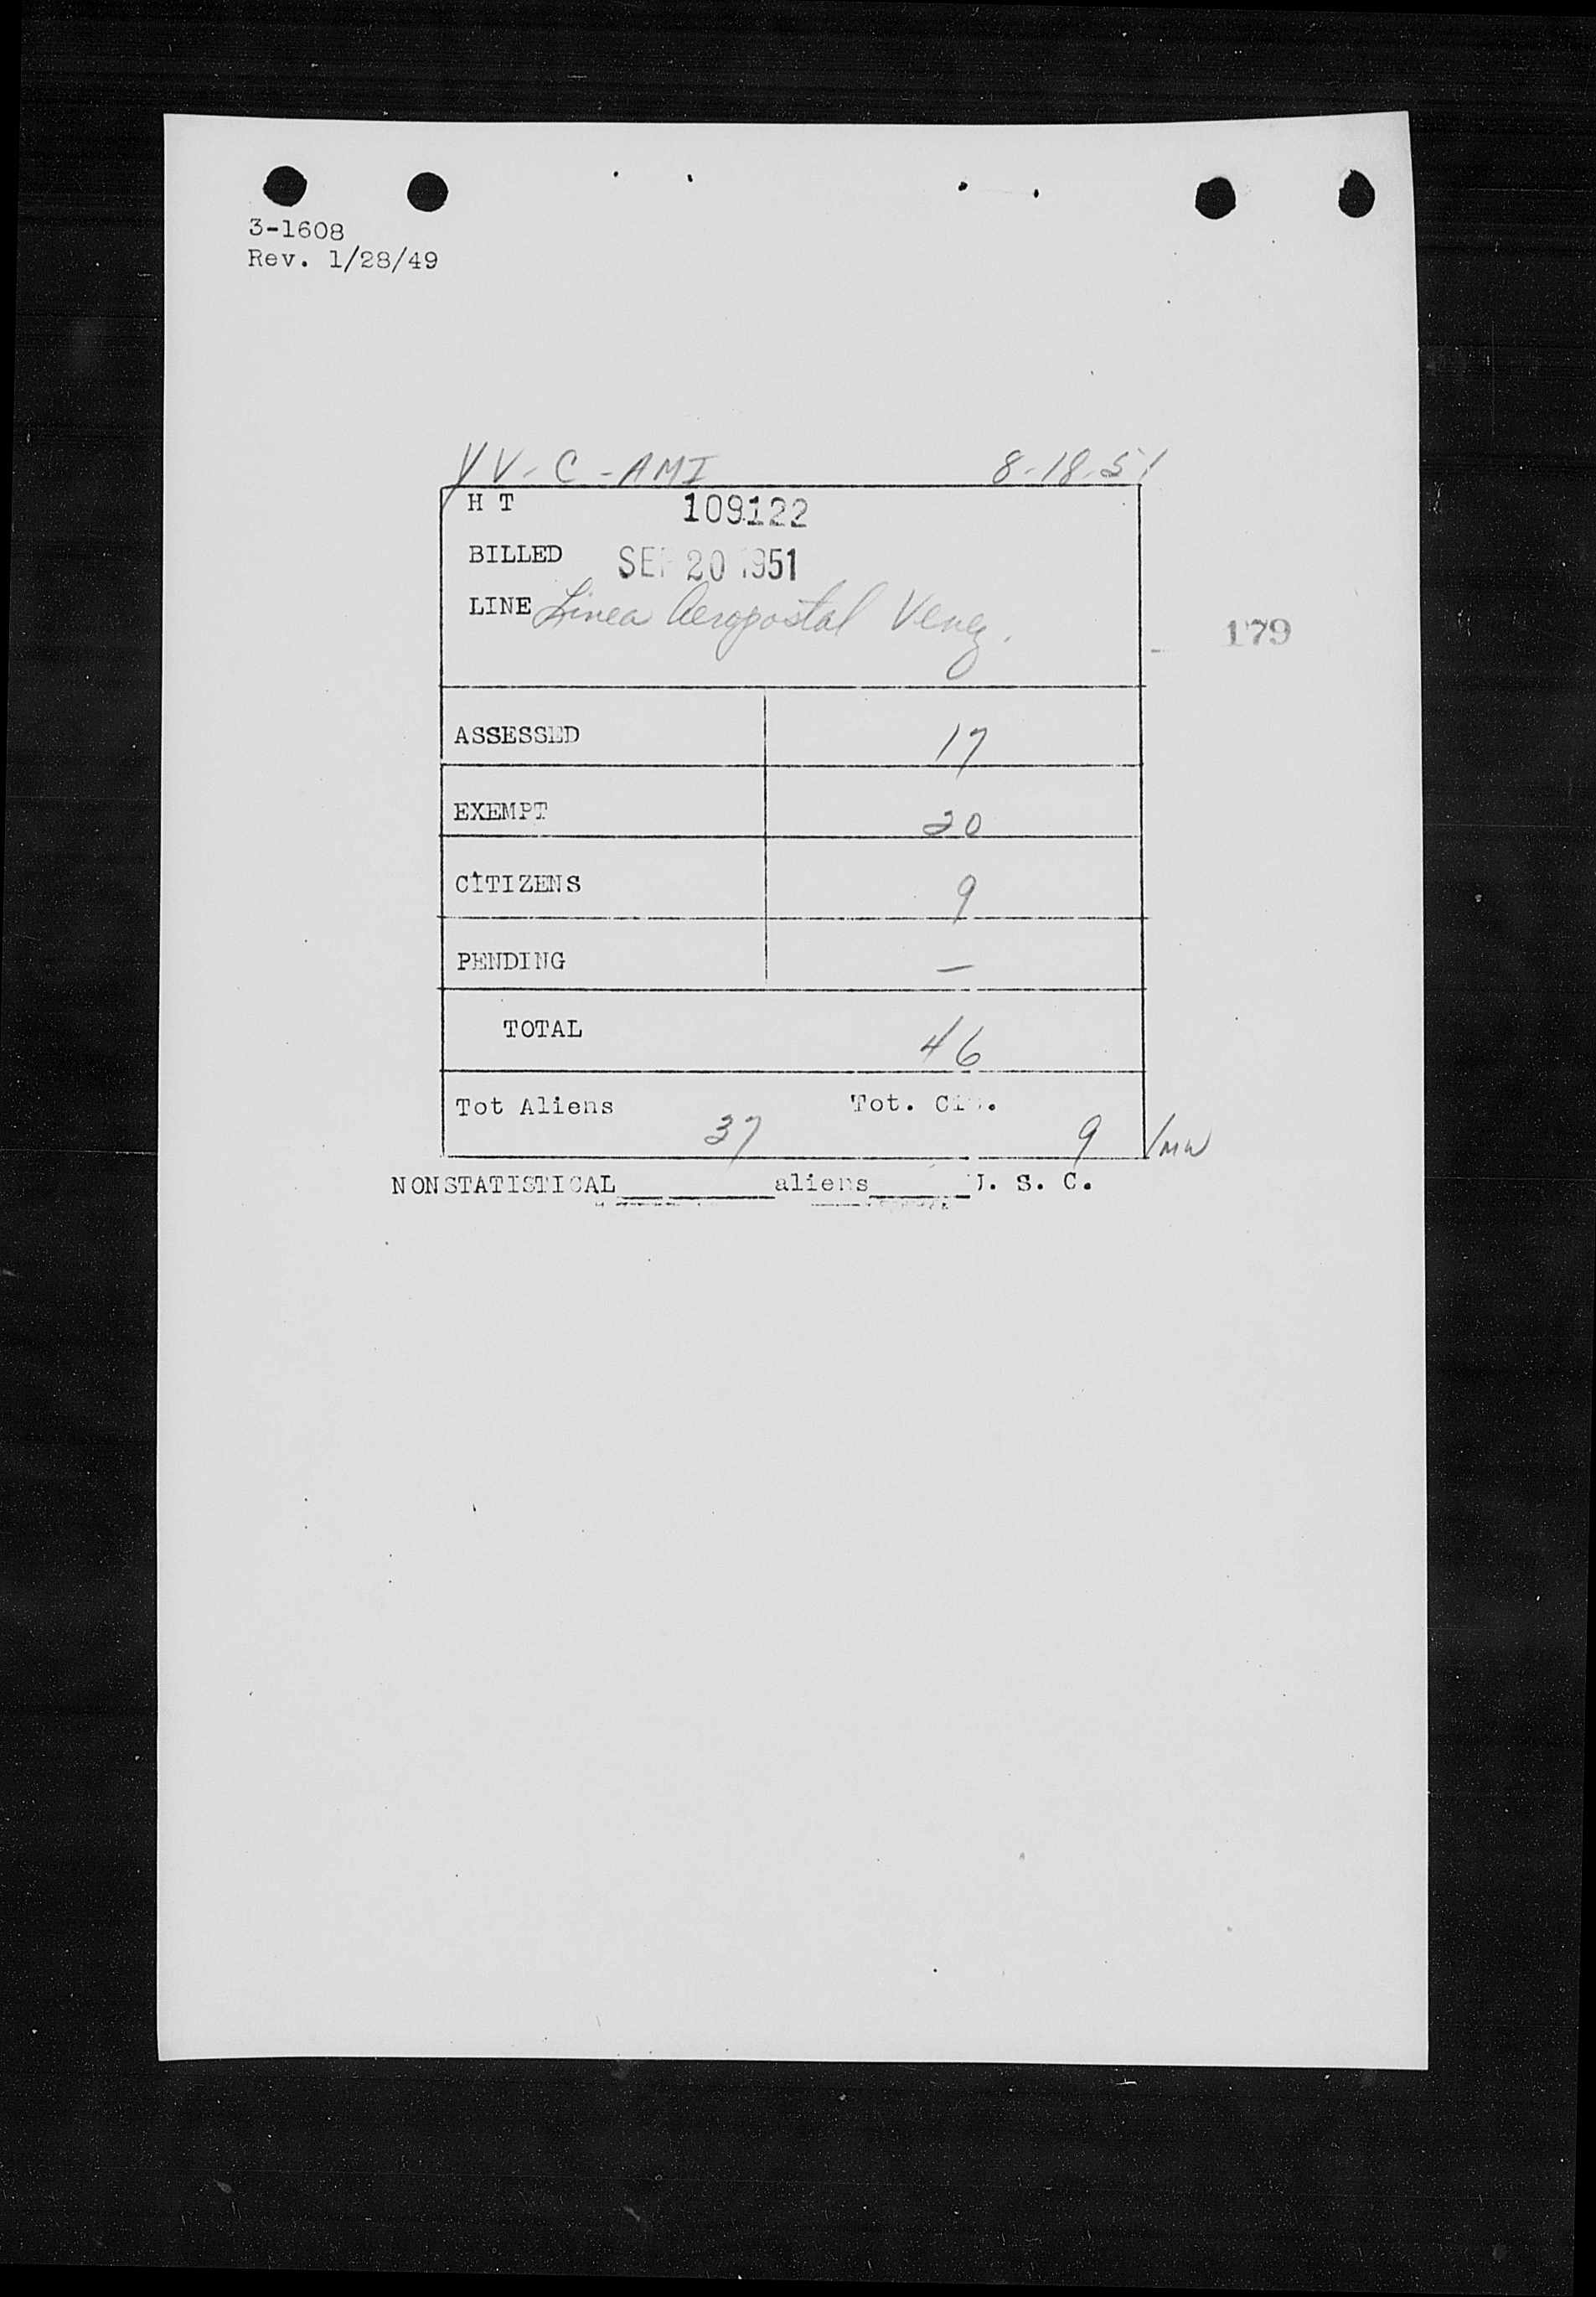 3-1608
Rev. 1/28/49
YV-C-AMI 8-18-51
H T 109122
BILLED SEP 20 1951
LINE Linea Aeropostal Venez.
179
ASSESSED 17
EXEMPT 20
CITIZENS 9
PENDING —
TOTAL 46
Tot Aliens 37 Tot. Cit. 9 /MW
NONSTATISTICAL__________aliens______U. S. C.